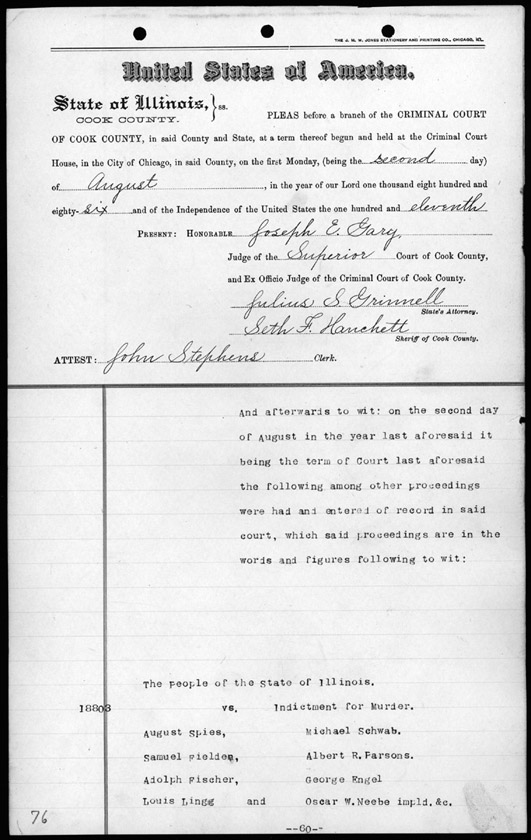 THE J. M. W. JONES STATIONERY AND PRINTING CO., CHICAGO, ILL.
United States of America.
State of Illinois, } ss.
COOK COUNTY.
PLEAS before a branch of the CRIMINAL COURT
OF COOK COUNTY, in said County and State, at a term thereof begun and held at the Criminal Court
House, in the City of Chicago, in said County, on the first Monday, (being the second day)
of August, in the year of our Lord one thousand eight hundred and
eighty-six and of the Independence of the United States the one hundred and eleventh
PRESENT: HONORABLE Joseph E. Gary.
Judge of the Superior Court of Cook County,
and Ex Officio Judge of the Criminal Court of Cook County.
Julius S Grinnell
State's Attorney.
Seth F. Hanchett
Sheriff of Cook County.
ATTEST: John Stephens Clerk.
And afterwards to wit: on the second day
of August in the year last aforesaid it
being the term of Court last aforesaid
the following among other proceedings
were had and entered of record in said
court, which said proceedings are in the
words and figures following to wit:
The People of the State of Illinois.
18803 vs. Indictment for Murder.
August Spies, Michael Schwab.
Samuel Fielden, Albert R. Parsons.
Adolph Fischer, George Engel
Louis Lingg and Oscar W. Neebe impld. &c.
76
--60--